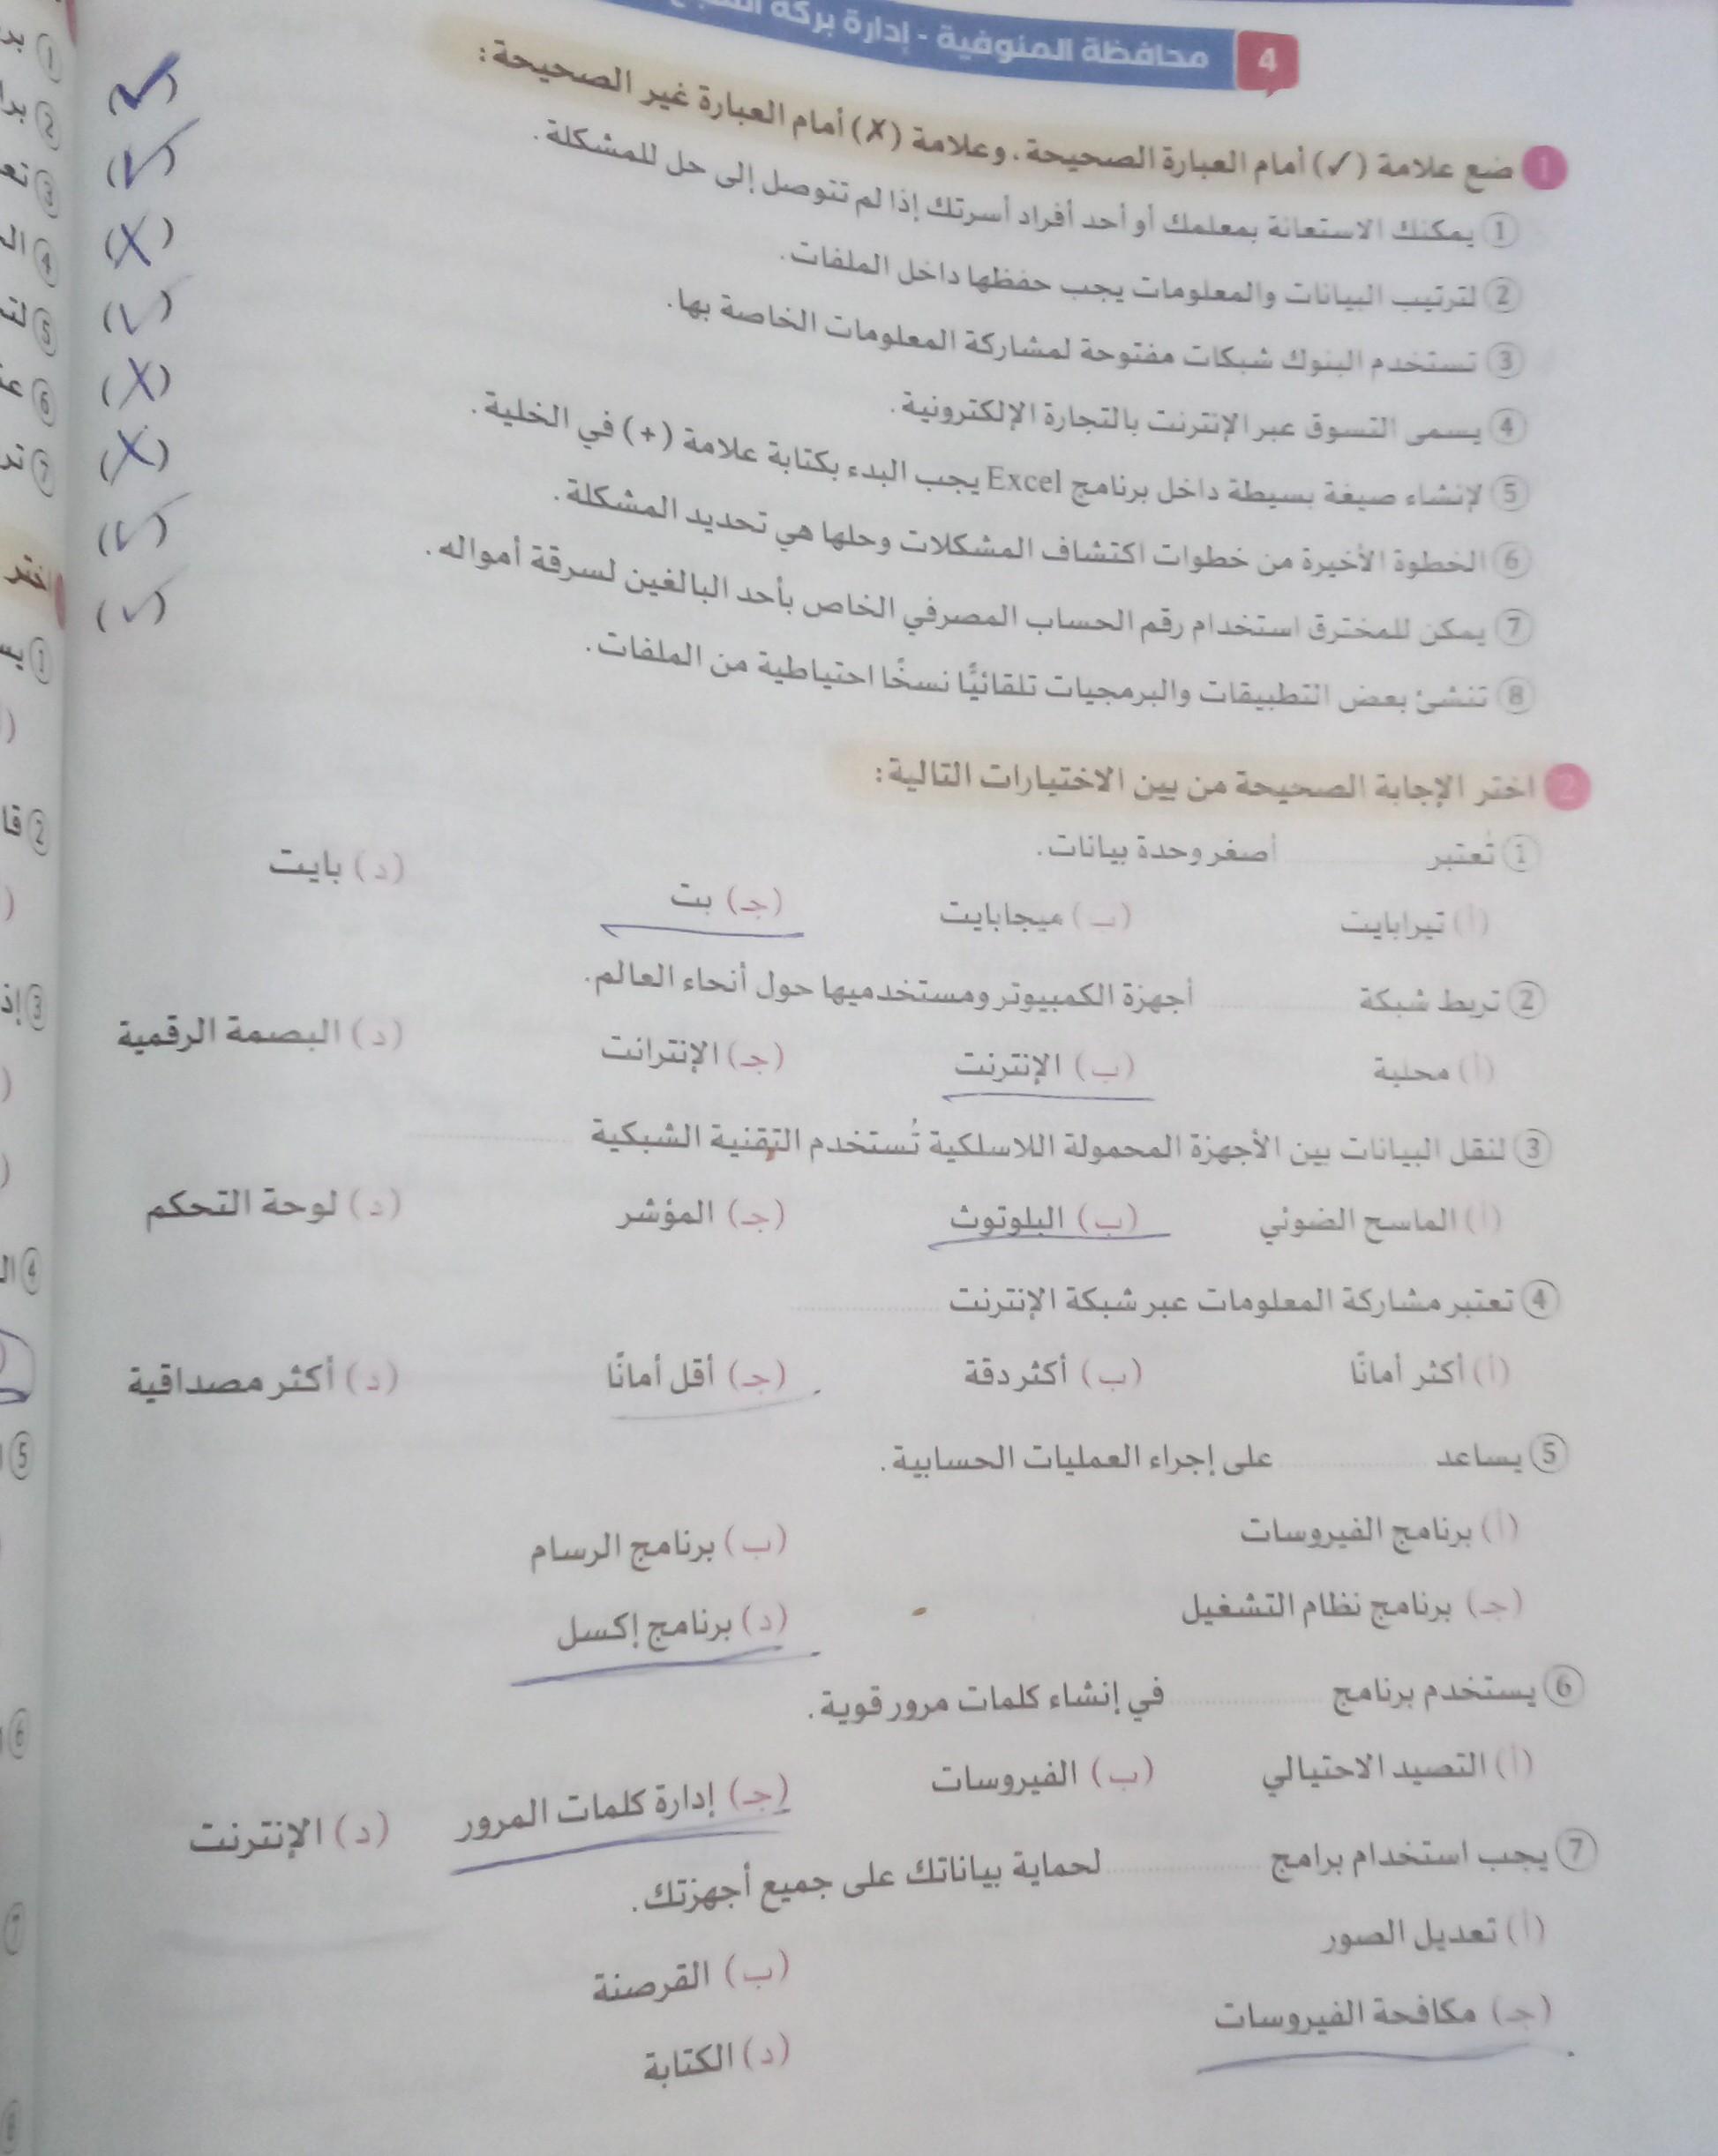 4 محافظة المنوفية - إدارة بركة
1 ضع علامة (✓) أمام العبارة الصحيحة، وعلامة (✗) أمام العبارة غير الصحيحة:
① يمكنك الاستعانة بمعلمك أو أحد أفراد أسرتك إذا لم تتوصل إلى حل للمشكلة. (✓)
② لترتيب البيانات والمعلومات يجب حفظها داخل الملفات. (✓)
③ تستخدم البنوك شبكات مفتوحة لمشاركة المعلومات الخاصة بها. (X)
④ يسمى التسوق عبر الإنترنت بالتجارة الإلكترونية. (✓)
⑤ لإنشاء صيغة بسيطة داخل برنامج Excel يجب البدء بكتابة علامة (+) في الخلية. (X)
⑥ الخطوة الأخيرة من خطوات اكتشاف المشكلات وحلها هي تحديد المشكلة. (X)
⑦ يمكن للمخترق استخدام رقم الحساب المصرفي الخاص بأحد البالغين لسرقة أمواله. (✓)
⑧ تنشئ بعض التطبيقات والبرمجيات تلقائيًّا نسخًا احتياطية من الملفات. (✓)
2 اختر الإجابة الصحيحة من بين الاختيارات التالية:
① تُعتبر ........ أصغر وحدة بيانات.
(أ) تيرابايت (ب) ميجابايت (جـ) بت (د) بايت
② تربط شبكة ........ أجهزة الكمبيوتر ومستخدميها حول أنحاء العالم.
(أ) محلية (ب) الإنترنت (جـ) الإنترانت (د) البصمة الرقمية
③ لنقل البيانات بين الأجهزة المحمولة اللاسلكية تُستخدم التقنية الشبكية ........
(أ) الماسح الضوئي (ب) البلوتوث (جـ) المؤشر (د) لوحة التحكم
④ تعتبر مشاركة المعلومات عبر شبكة الإنترنت ........
(أ) أكثر أمانًا (ب) أكثر دقة (جـ) أقل أمانًا (د) أكثر مصداقية
⑤ يساعد ........ على إجراء العمليات الحسابية.
(أ) برنامج الفيروسات (ب) برنامج الرسام
(جـ) برنامج نظام التشغيل (د) برنامج إكسل
⑥ يستخدم برنامج ........ في إنشاء كلمات مرور قوية.
(أ) التصيد الاحتيالي (ب) الفيروسات (جـ) إدارة كلمات المرور (د) الإنترنت
⑦ يجب استخدام برامج ........ لحماية بياناتك على جميع أجهزتك.
(أ) تعديل الصور (ب) القرصنة
(جـ) مكافحة الفيروسات (د) الكتابة